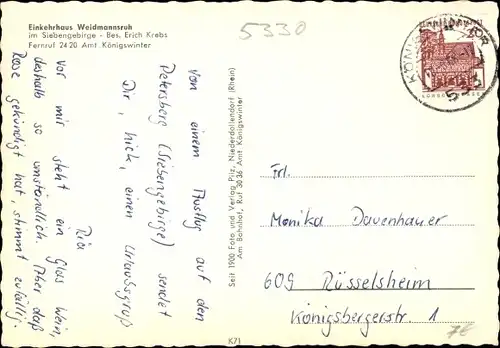 Einkehrhaus Weidmannsruh
im Siebengebirge - Bes. Erich Krebs
Fernruf 2420 Amt Königswinter
5330
Von einem Ausflug auf den
Petersberg (Siebengebirge) sendet
Dir, hick, einen Urlaubsgruß
Ria
Vor mir steht ein Glas Wein,
deshalb so umständlich. Aber daß
Rose gekündigt hat, stimmt zufällig.
Seit 1900 Foto und Verlag Pilz, Niederdollendorf (Rhein)
Am Bahnhof, Ruf 3036 Amt Königswinter
K71
Frl.
Monika Dauenhauer
609 Rüsselsheim
Königsbergerstr. 1
7€